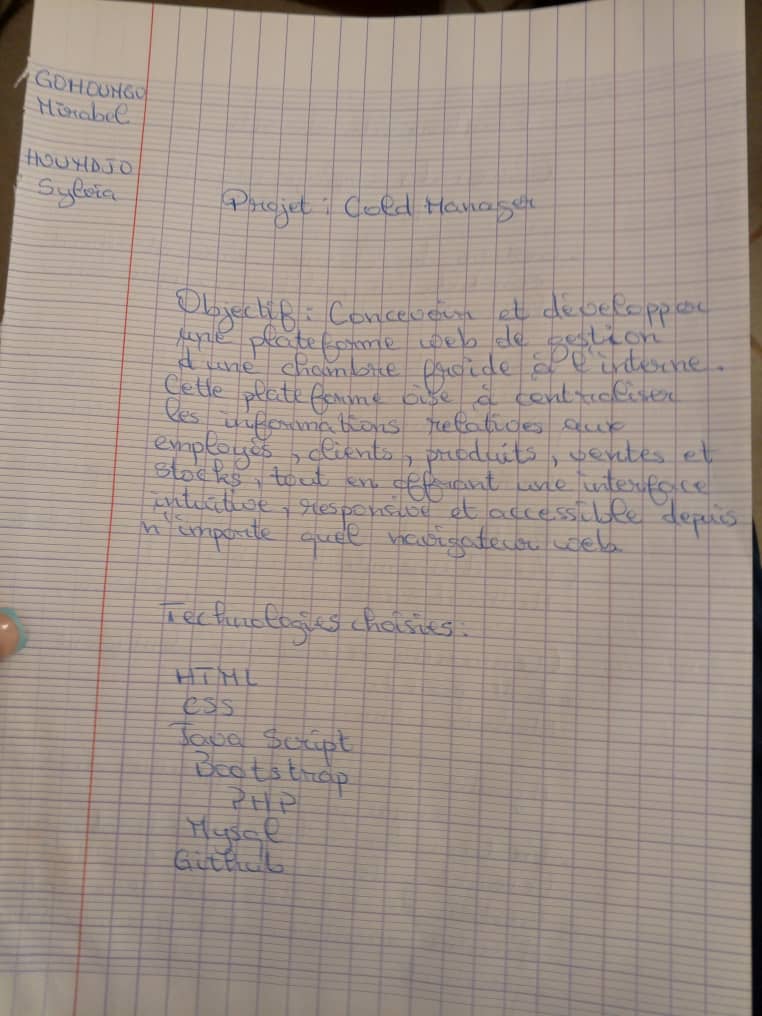 GOHOUNGO
Mirabel
HOUNDJO
Sylvia
Projet : Cold Manager
Objectif : Concevoir et développer
une plateforme web de gestion
d'une chambre froide à l'interne.
Cette plateforme vise à centraliser
les informations relatives aux
employés, clients, produits, ventes et
stocks, tout en offrant une interface
intuitive, responsive et accessible depuis
n'importe quel navigateur web
Technologies choisies :
HTML
CSS
Java Script
Bootstrap
PHP
Mysql
Github